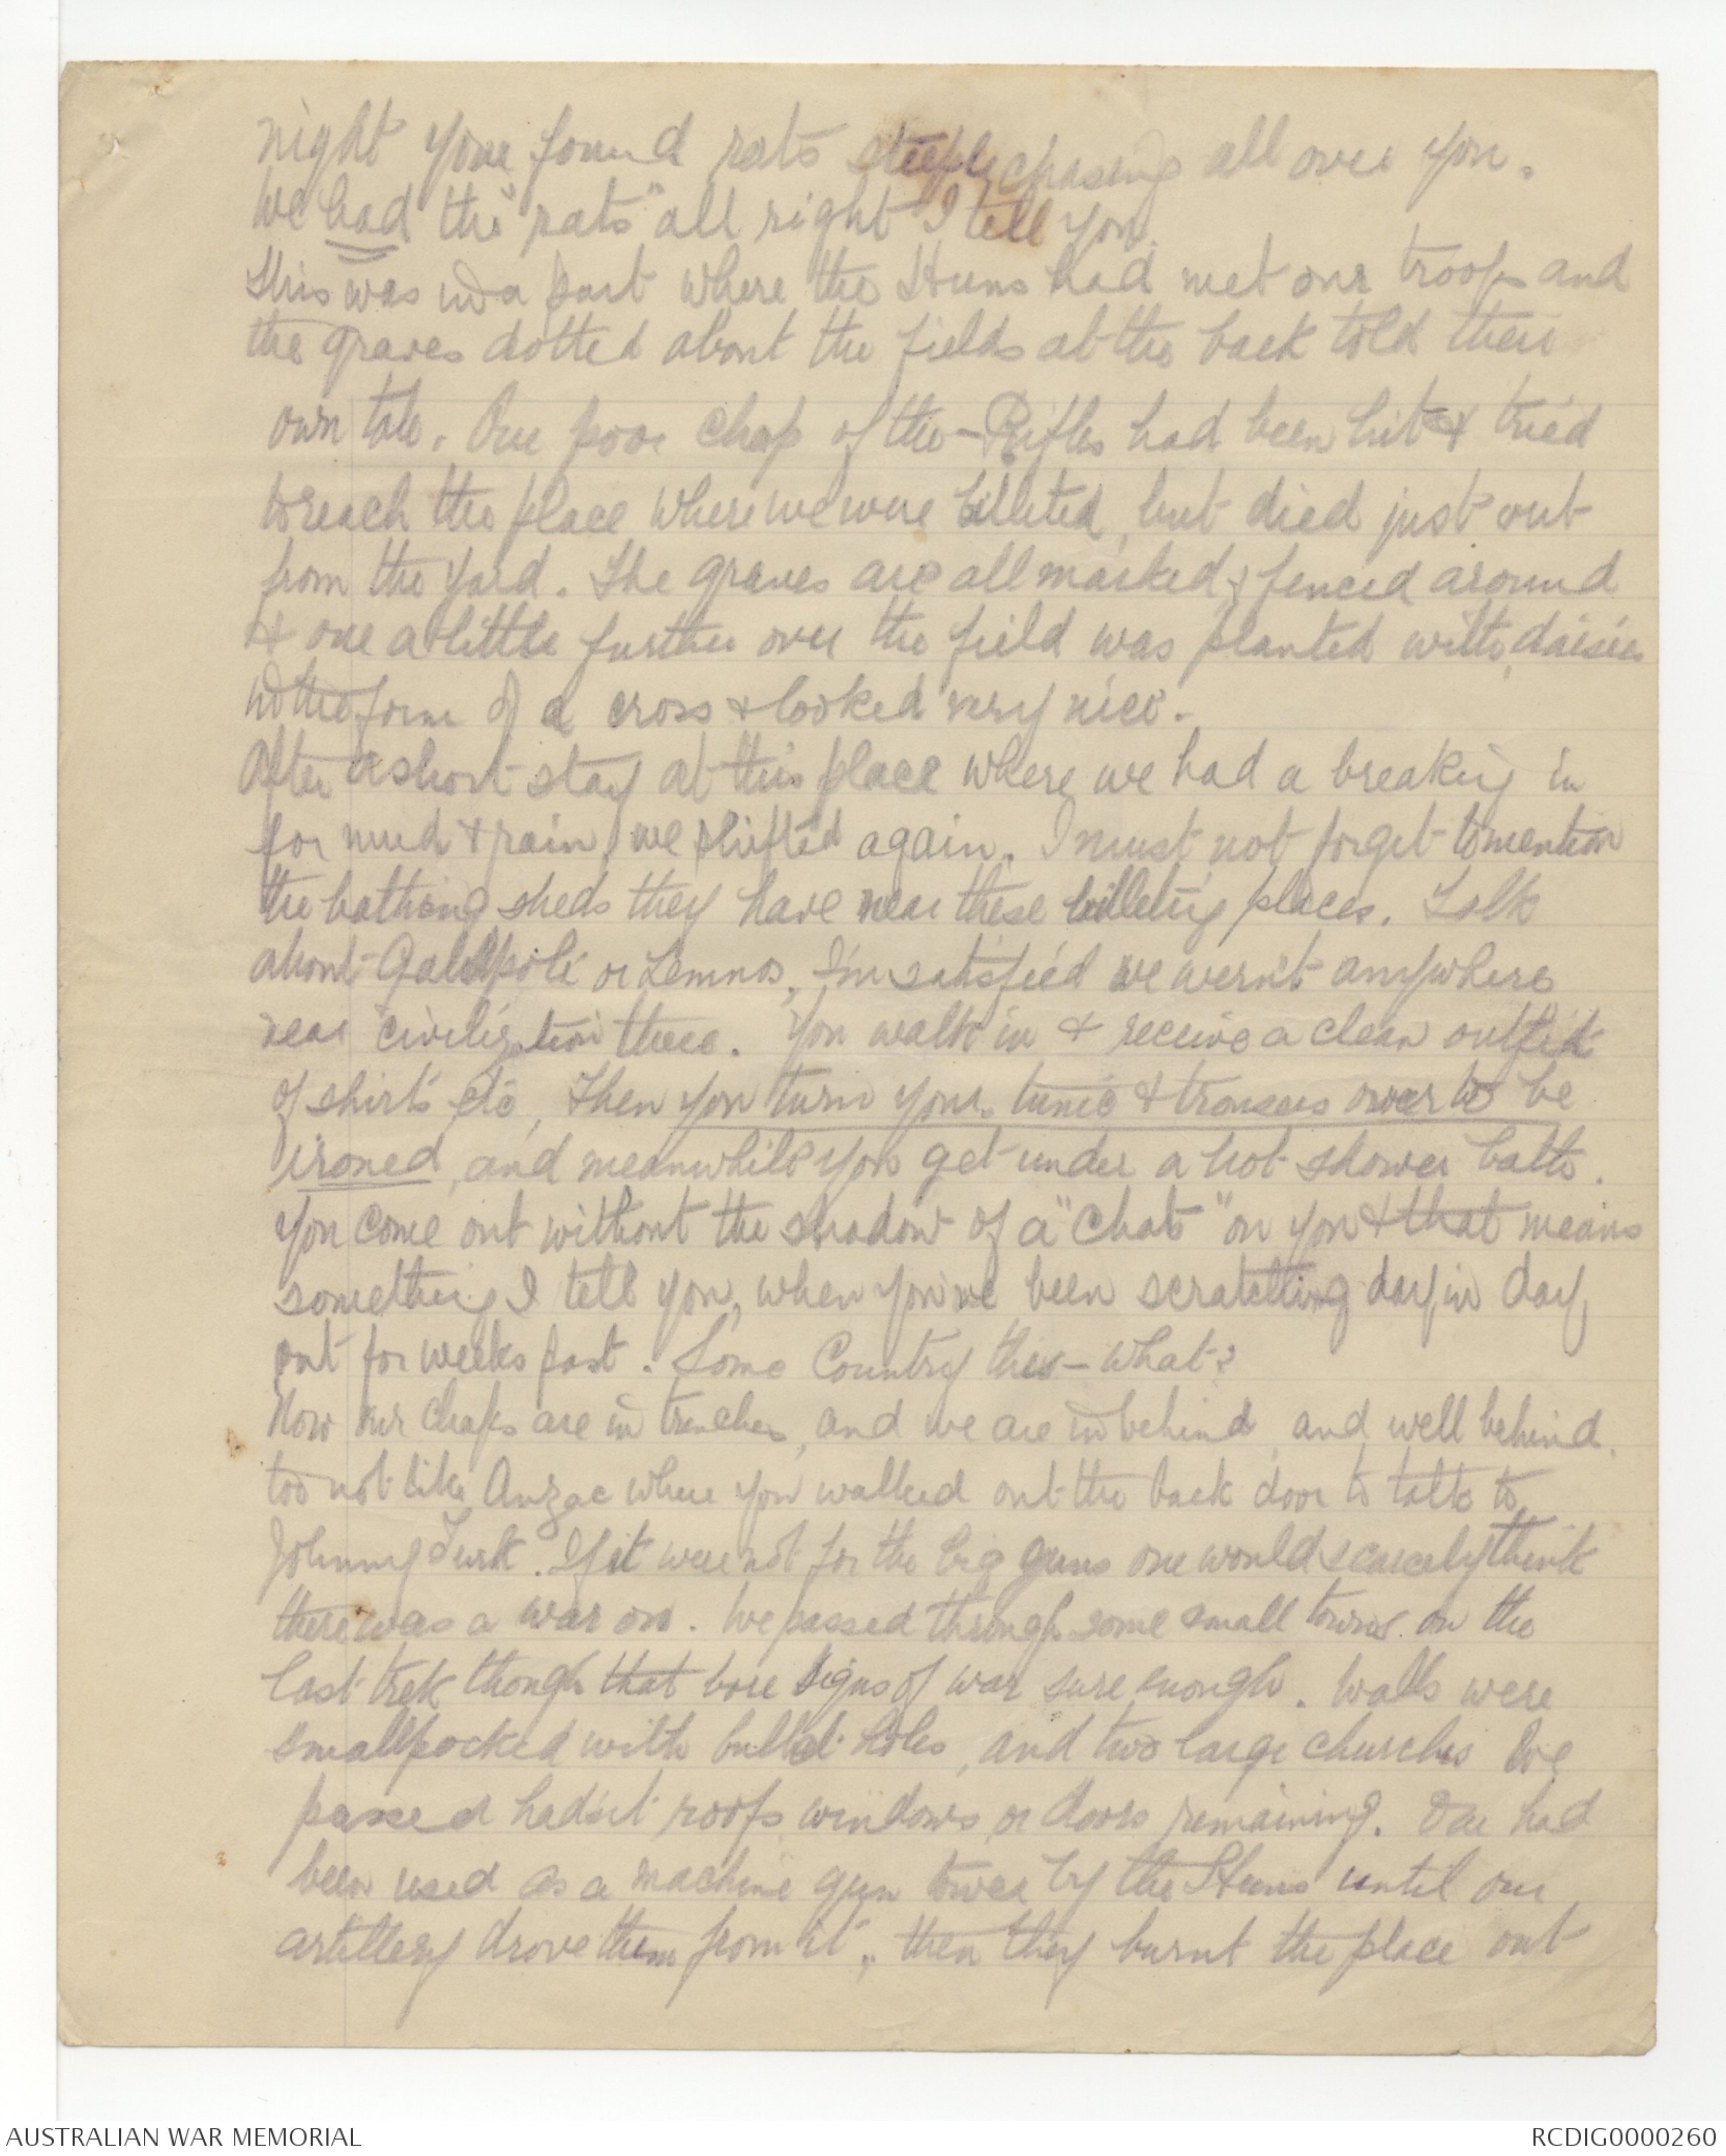 night you found rats steeplechasing all over you.
We had the "rats" all right I tell you.
This was in a part where the Huns had met our troops and
the graves dotted about the fields at the back told their
own tale. One poor chap of the – Rifles had been hit & tried
to reach the place where we were billeted, but died just out
from the yard. The graves are all marked & fenced around
& one a little further over the field was planted with daisies
in the form of a cross & looked very nice.
After a short stay at this place where we had a breaking in
for mud & rain, we shifted again. I must not forget to mention
the bathing sheds they have near these billeting places. Talk
about Gallipoli or Lemnos, I'm satisfied we wern't anywhere
near civilization there. You walk in & receive a clean outfit
of shirts etc, then you turn your tunic & trousers over to be
ironed, and meanwhile you get under a hot shower bath.
You come out without the shadow of a "chat" on you & that means
something I tell you, when you've been scratching day in day
out for weeks past. Some Country this – what?
Now our chaps are in trenches, and we are in behind, and well behind
too not like Anzac where you walked out the back door to talk to
Johnny Turk. If it were not for the big guns one would scarcely think
there was a war on. We passed through some small towns on the
last trek though that bore signs of war sure enough. Walls were
smallpocked with bullet holes, and two large churches we
passed hadn't roofs windows or doors remaining. One had
been used as a machine gun tower by the Huns until our
artillery drove them from it, then they burnt the place out
AUSTRALIAN WAR MEMORIAL
RCDIG0000260